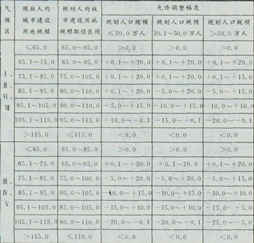 气候区 现状人均城市建设用地规模 规划人均城市建设用地规模取值区间 允许调整幅度
规划人口规模≤20.0万人 规划人口规模20.1~50.0万人 规划人口规模>50.0万人
Ⅰ、Ⅱ、Ⅵ、Ⅶ
≤65.0 65.0~85.0 >0.0 >0.0 >0.0
65.1~75.0 65.0~95.0 +0.1~+20.0 +0.1~+20.0 +0.1~+20.0
75.1~85.0 75.0~105.0 +0.1~+20.0 +0.1~+20.0 +0.1~+15.0
85.1~95.0 80.0~110.0 +0.1~+20.0 -5.0~+20.0 -5.0~+15.0
95.1~105.0 90.0~110.0 -5.0~+15.0 -10.0~+15.0 -10.0~+10.0
105.1~115.0 95.0~115.0 -10.0~-0.1 -15.0~-0.1 -20.0~-0.1
>115.0 ≤115.0 <0.0 <0.0 <0.0
Ⅲ、Ⅳ、Ⅴ
≤65.0 65.0~85.0 >0.0 >0.0 >0.0
65.1~75.0 65.0~95.0 +0.1~+20.0 +0.1~+20.0 +0.1~+20.0
75.1~85.0 75.0~100.0 -5.0~+20.0 -5.0~+20.0 -5.0~+15.0
85.1~95.0 80.0~105.0 -10.0~+15.0 -10.0~+15.0 -10.0~+10.0
95.1~105.0 85.0~105.0 -15.0~+10.0 -15.0~+10.0 -15.0~+5.0
105.1~115.0 90.0~110.0 -20.0~-0.1 -20.0~-0.1 -25.0~-5.0
>115.0 ≤110.0 <0.0 <0.0 <0.0